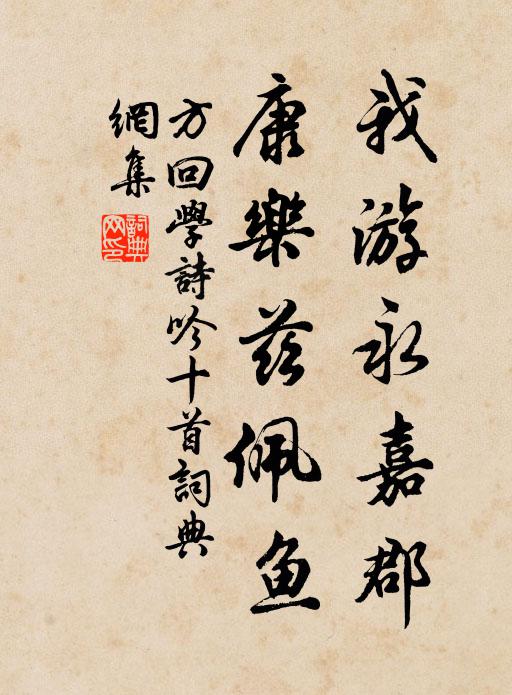 我游永嘉郡
康樂茲佩鱼
方回學詩吟十首詞典
網集
詞典
网印